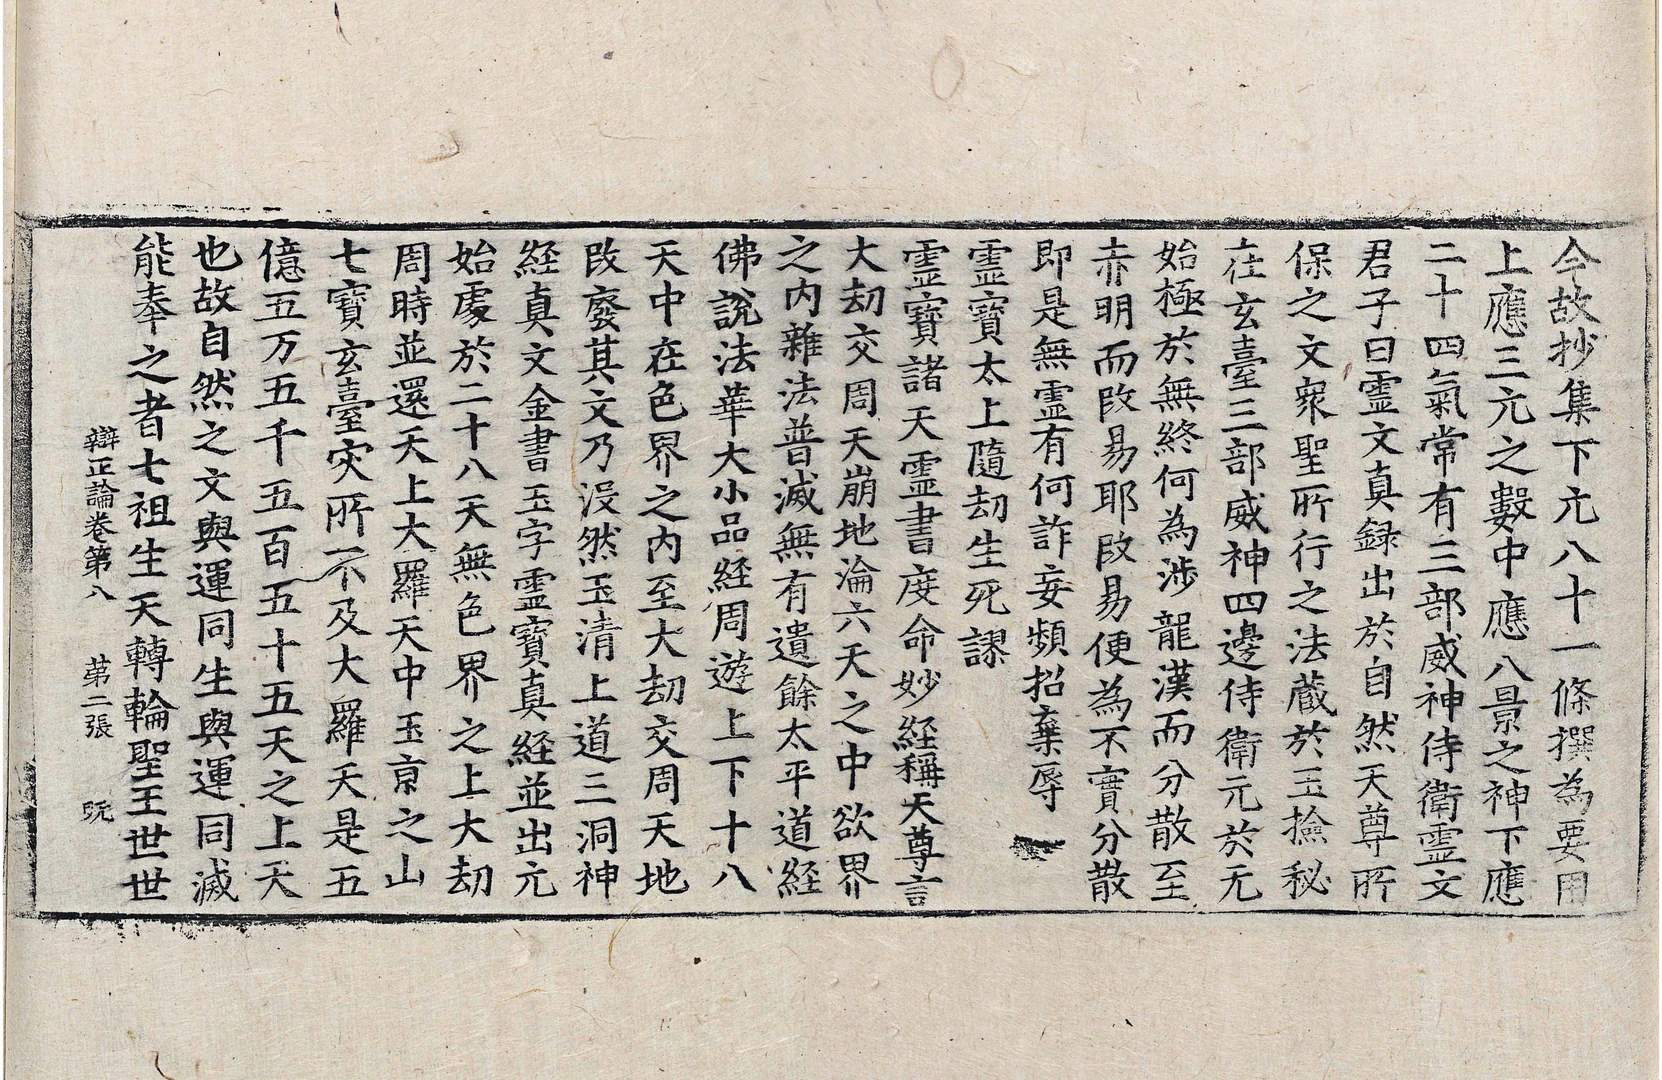 今故抄集下元八十一條撰為要用
上應三元之數中應八景之神下應
二十四氣常有三部威神侍衛霊文
君子曰霊文真録出於自然天尊所
保之文衆聖所行之法蔵於玉撿秘
在玄臺三部威神四邊侍衛元於无
始極於無終何為涉龍漢而分散至
赤明而改易耶改易便為不實分散
即是無霊有何詐妄頻招棄辱
霊寶太上隨劫生死謬
霊寶諸天霊書度命妙経稱天尊言
大劫交周天崩地淪六天之中欲界
之内雜法普滅無有遺餘太平道経
佛說法華大小品経周遊上下十八
天中在色界之内至大劫交周天地
改廢其文乃沒然玉清上道三洞神
経真文金書玉字霊寶真経並出元
始處於二十八天無色界之上大劫
周時並還天上大羅天中玉京之山
七寶玄臺灾所不及大羅天是五
億五万五千五百五十五天之上天
也故自然之文與運同生與運同滅
能奉之者七祖生天轉輪聖王世世
辯正論卷第八 第二張